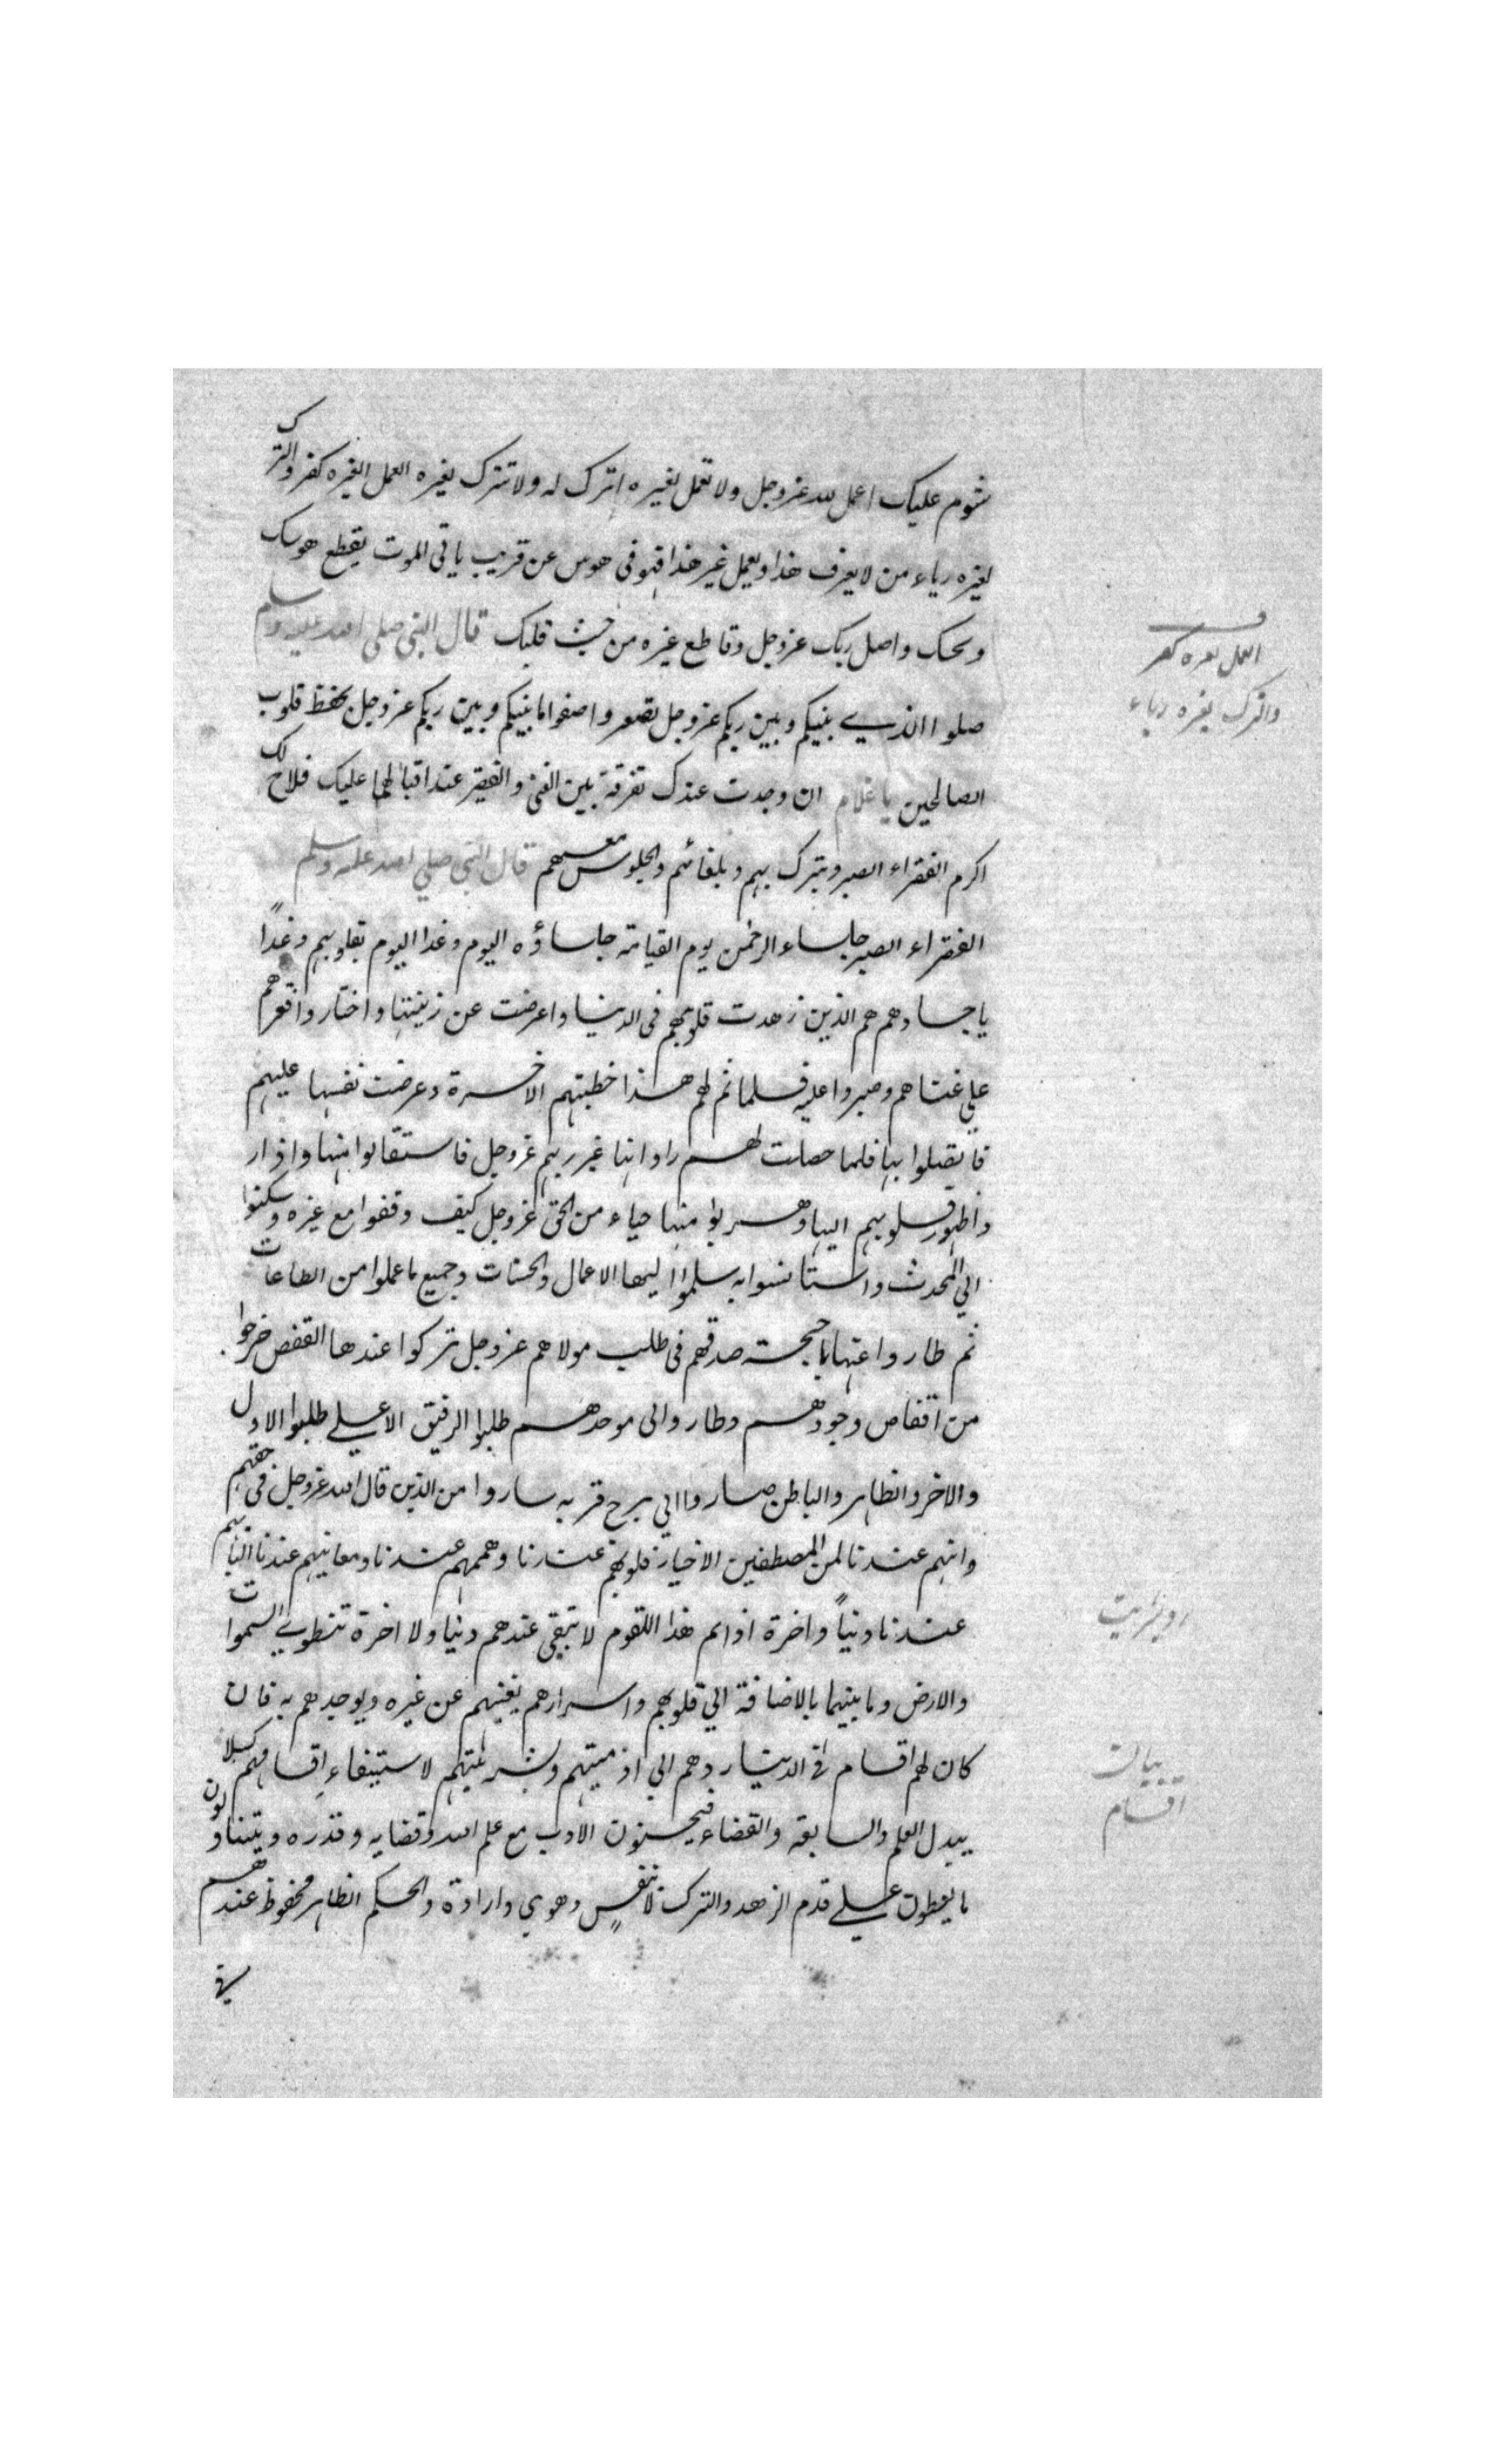 شوم عليك اعمل لله عزوجل ولا تعمل لغيره اترك له ولا تترك لغيره العمل لغيره كفر والترك
لغيره رياء من لا يعرف هذا ويعمل غير هذا فهو فى هوس عن قريب ياتى الموت يقطع هوسك
ويحك واصل ربك عزوجل وقاطع غيره من حيث قلبك قال النبى صلى الله عليه وسلم
صلوا الذي بينكم وبين ربكم عزوجل تسعدوا واصفوا ما بينكم وبين ربكم عزوجل بحفظ قلوب
الصالحين يا غلام ان وجدت عندك تفرقة بين الغنى والفقير عند اقبالهما عليك فلا فلاح لك
اكرم الفقراء الصبر وتبرك بهم وبلقائهم والجلوس معهم قال النبي صلي الله عليه وسلم
الفقراء الصبر جلساء الرحمن يوم القيامة جلساؤه اليوم وغدا اليوم بقلوبهم وغدًا
باجسادهم هم الذين زهدت قلوبهم فى الدنيا واعرضت عن زينتها واختاروا فقرهم
علي غناهم وصبروا عليه فلما تم لهم هذا خطبتهم الاخرة وعرضت نفسها عليهم
فاتصلوا بها فلما حصلت لهم راوا انها غير ربهم عزوجل فاستقالوا منها واذار
واظهور قلوبهم اليها وهربوا منها حياء من الحق عزوجل كيف وقفوا مع غيره وسكنوا
الي المحدث واستانسوا به سلموا اليها الاعمال والحسنات وجميع ما عملوا من الطاعات
ثم طاروا عنها باجنحة صدقهم فى طلب مولاهم عزوجل تركوا عندها القفص خرجوا
من اقفاص وجودهم وطاروا الى موجدهم طلبوا الرفيق الاعلي طلبوا الاول
والاخر والظاهر والباطن صاروا الي برج قربه ساروا من الذين قال الله عزوجل فى حقهم
وانهم عندنا لمن المصطفين الاخيار قلوبهم عندنا وهممهم عندنا ومعانيهم عندنا البابهم
عندنا دنياً واخرة اذا تم هذا للقوم لا تبقى عندهم دنيا ولا اخرة تنطوي السموات
والارض وما بينهما بالاضافة الي قلوبهم واسرارهم يفنيهم عن غيره ويوجدهم به فان
كان لهم اقسام فى الدنيا ردهم الي ادميتهم وبشريتهم لاستيفاء اقسامهم كيلا
يبدل العلم والسابقة والقضاء فيحسنون الادب مع علم الله وقضايه وقدره ويتناولون
ما يعطون علي قدم الزهد والترك لا بنفسٍ وهوي وارادة والحكم الظاهر محفوظ عندهم
فى
العمل لغيره كفر
والترك لغيره رياء
اقسام